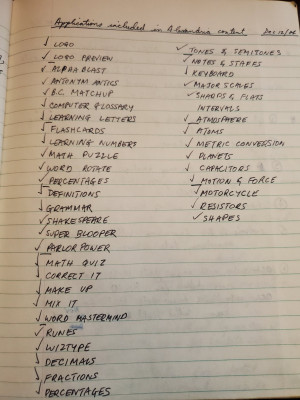 Applications included in Alexandria content
✓ LOGO
✓ LOGO PREVIEW
✓ ALPHA BLAST
✓ ANTONYM ANTICS
✓ B.C. MATCHUP
✓ COMPUTER GLOSSARY
✓ LEARNING LETTERS
✓ FLASHCARDS
✓ LEARNING NUMBERS
✓ MATH PUZZLE
✓ WORD ROTATE
✓ PERCENTAGES
✓ DEFINITIONS
✓ GRAMMAR
✓ SHAKESPEARE
✓ SUPER BLOOPER
✓ PARLOR POWER
✓ MATH QUIZ
✓ CORRECT IT
✓ MAKE UP
✓ MIX IT
✓ WORD MASTERMIND
✓ RUNES
✓ WIZTYPE
✓ DECIMALS
✓ FRACTIONS
✓ PERCENTAGES
✓ TONES & SEMITONES
✓ NOTES & STAFFS
✓ KEYBOARD
✓ MAJOR SCALES
✓ SHARPS & FLATS
INTERVALS
✓ ATMOSPHERE
✓ ATOMS
✓ METRIC CONVERSION
✓ PLANETS
✓ CAPACITORS
✓ MOTION & FORCE
✓ MOTORCYCLE
✓ RESISTORS
✓ SHAPES